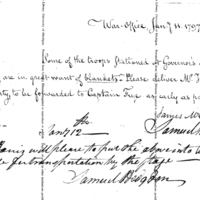 War-Office, Jan 11 1797
Some of the troops stationed at Governor's
are in great want of blankets. Please deliver Mr.
ty to be forwarded to Captain Frye as early as
James Mc
Jan 12th
Samuel
will please to put the above into
for transportation by the stage
Samuel Hodgdon